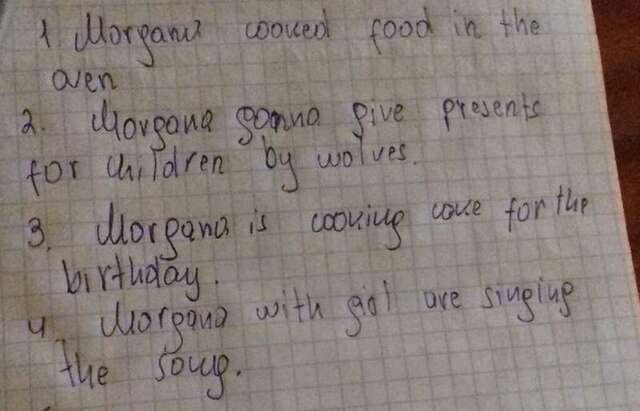 1 Morgana cooked food in the
oven
2. Morgana gonna give presents
for children by wolves.
3. Morgana is cooking cake for the
birthday.
4. Morgana with girl are singing
the song.